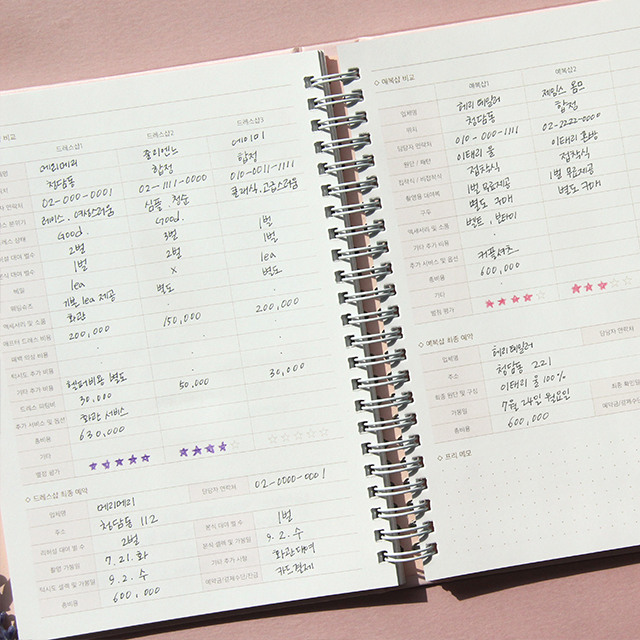 비교
드레스샵1 드레스샵2 드레스샵3
업체명 메리메리 줄리엔느 에이미
위치 청담동 합정 합정
담당자 연락처 02-000-0001 02-1111-0000 010-0011-1111
레이스. 여성스러움 심플. 청순 클래식.고급스러움
드레스 상태 Good. Good.
리허설 대여 벌수 2벌 3벌 1벌
본식 대여 벌수 1벌 2벌 1벌
베일 1ea x 1ea
웨딩슈즈 기본 1ea 제공 별도 별도
액세서리 및 소품 화관 · ·
애프터 드레스 비용 200,000 150,000 200,000
턱시도 추가 비용 ·
기타 추가 비용 헬퍼비용 별도
드레스 피팅비 30,000 50,000 30,000
추가 서비스 및 옵션 화관 서비스
총비용 630,000
기타
별점 평가
◇ 드레스샵 최종 예약
업체명 메리메리 담당자 연락처 02-0000-0001
주소 청담동 112
리허설 대여 벌 수 2벌 본식 대여 벌 수 1벌
촬영 가봉일 7.21.화 본식 셀렉 및 가봉일 9.2.수
턱시도 셀렉 및 가봉일 9.2.수 기타 추가 사항 화관대여
총비용 600,000 예약금/잔금 카드결제
◇ 예복샵 비교
예복샵1 예복샵2
업체명 헤리 테일러 제임스 옴므
위치 청담동 합정
담당자 연락처 010-000-1111 02-2222-0000
원단 / 패턴 이태리 울 이태리 혼방
접착식 / 비접착식 접착식 접착식
촬영용 대여복 1벌 무료제공 1벌 무료제공
구두 별도 구매 별도 구매
액세서리 및 소품 벨트, 보타이 ·
기타 추가 비용 · ·
추가 서비스 및 옵션 커플셔츠
총비용 600,000
기타 · ·
별점 평가
◇ 예복샵 최종 예약
업체명 헤리테일러 담당자 연락처
주소 청담동 221
최종 원단 및 구성 이태리 울 100%
가봉일 7월 24일 월요일 최종 확인
총비용 600,000
◇ 프리 메모